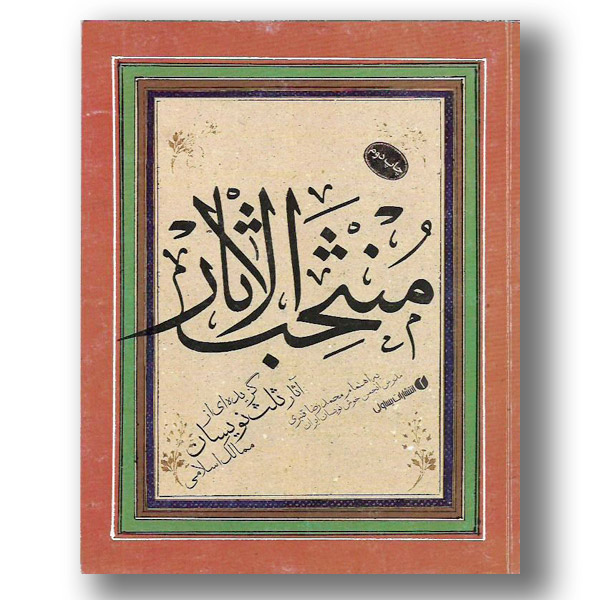 چاپ دوم
مُنتَخَب الاثار
گزیده‌ای از
آثار ثلث نویسان
ممالک اسلامی
به راهنمایی محمدرضا قنبری
مدرس انجمن خوشنویسان ایران
انتشارات یساولی